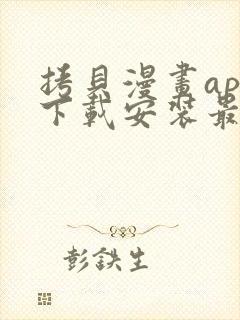 拷貝漫畫ap
下載安裝最
彭鉄生